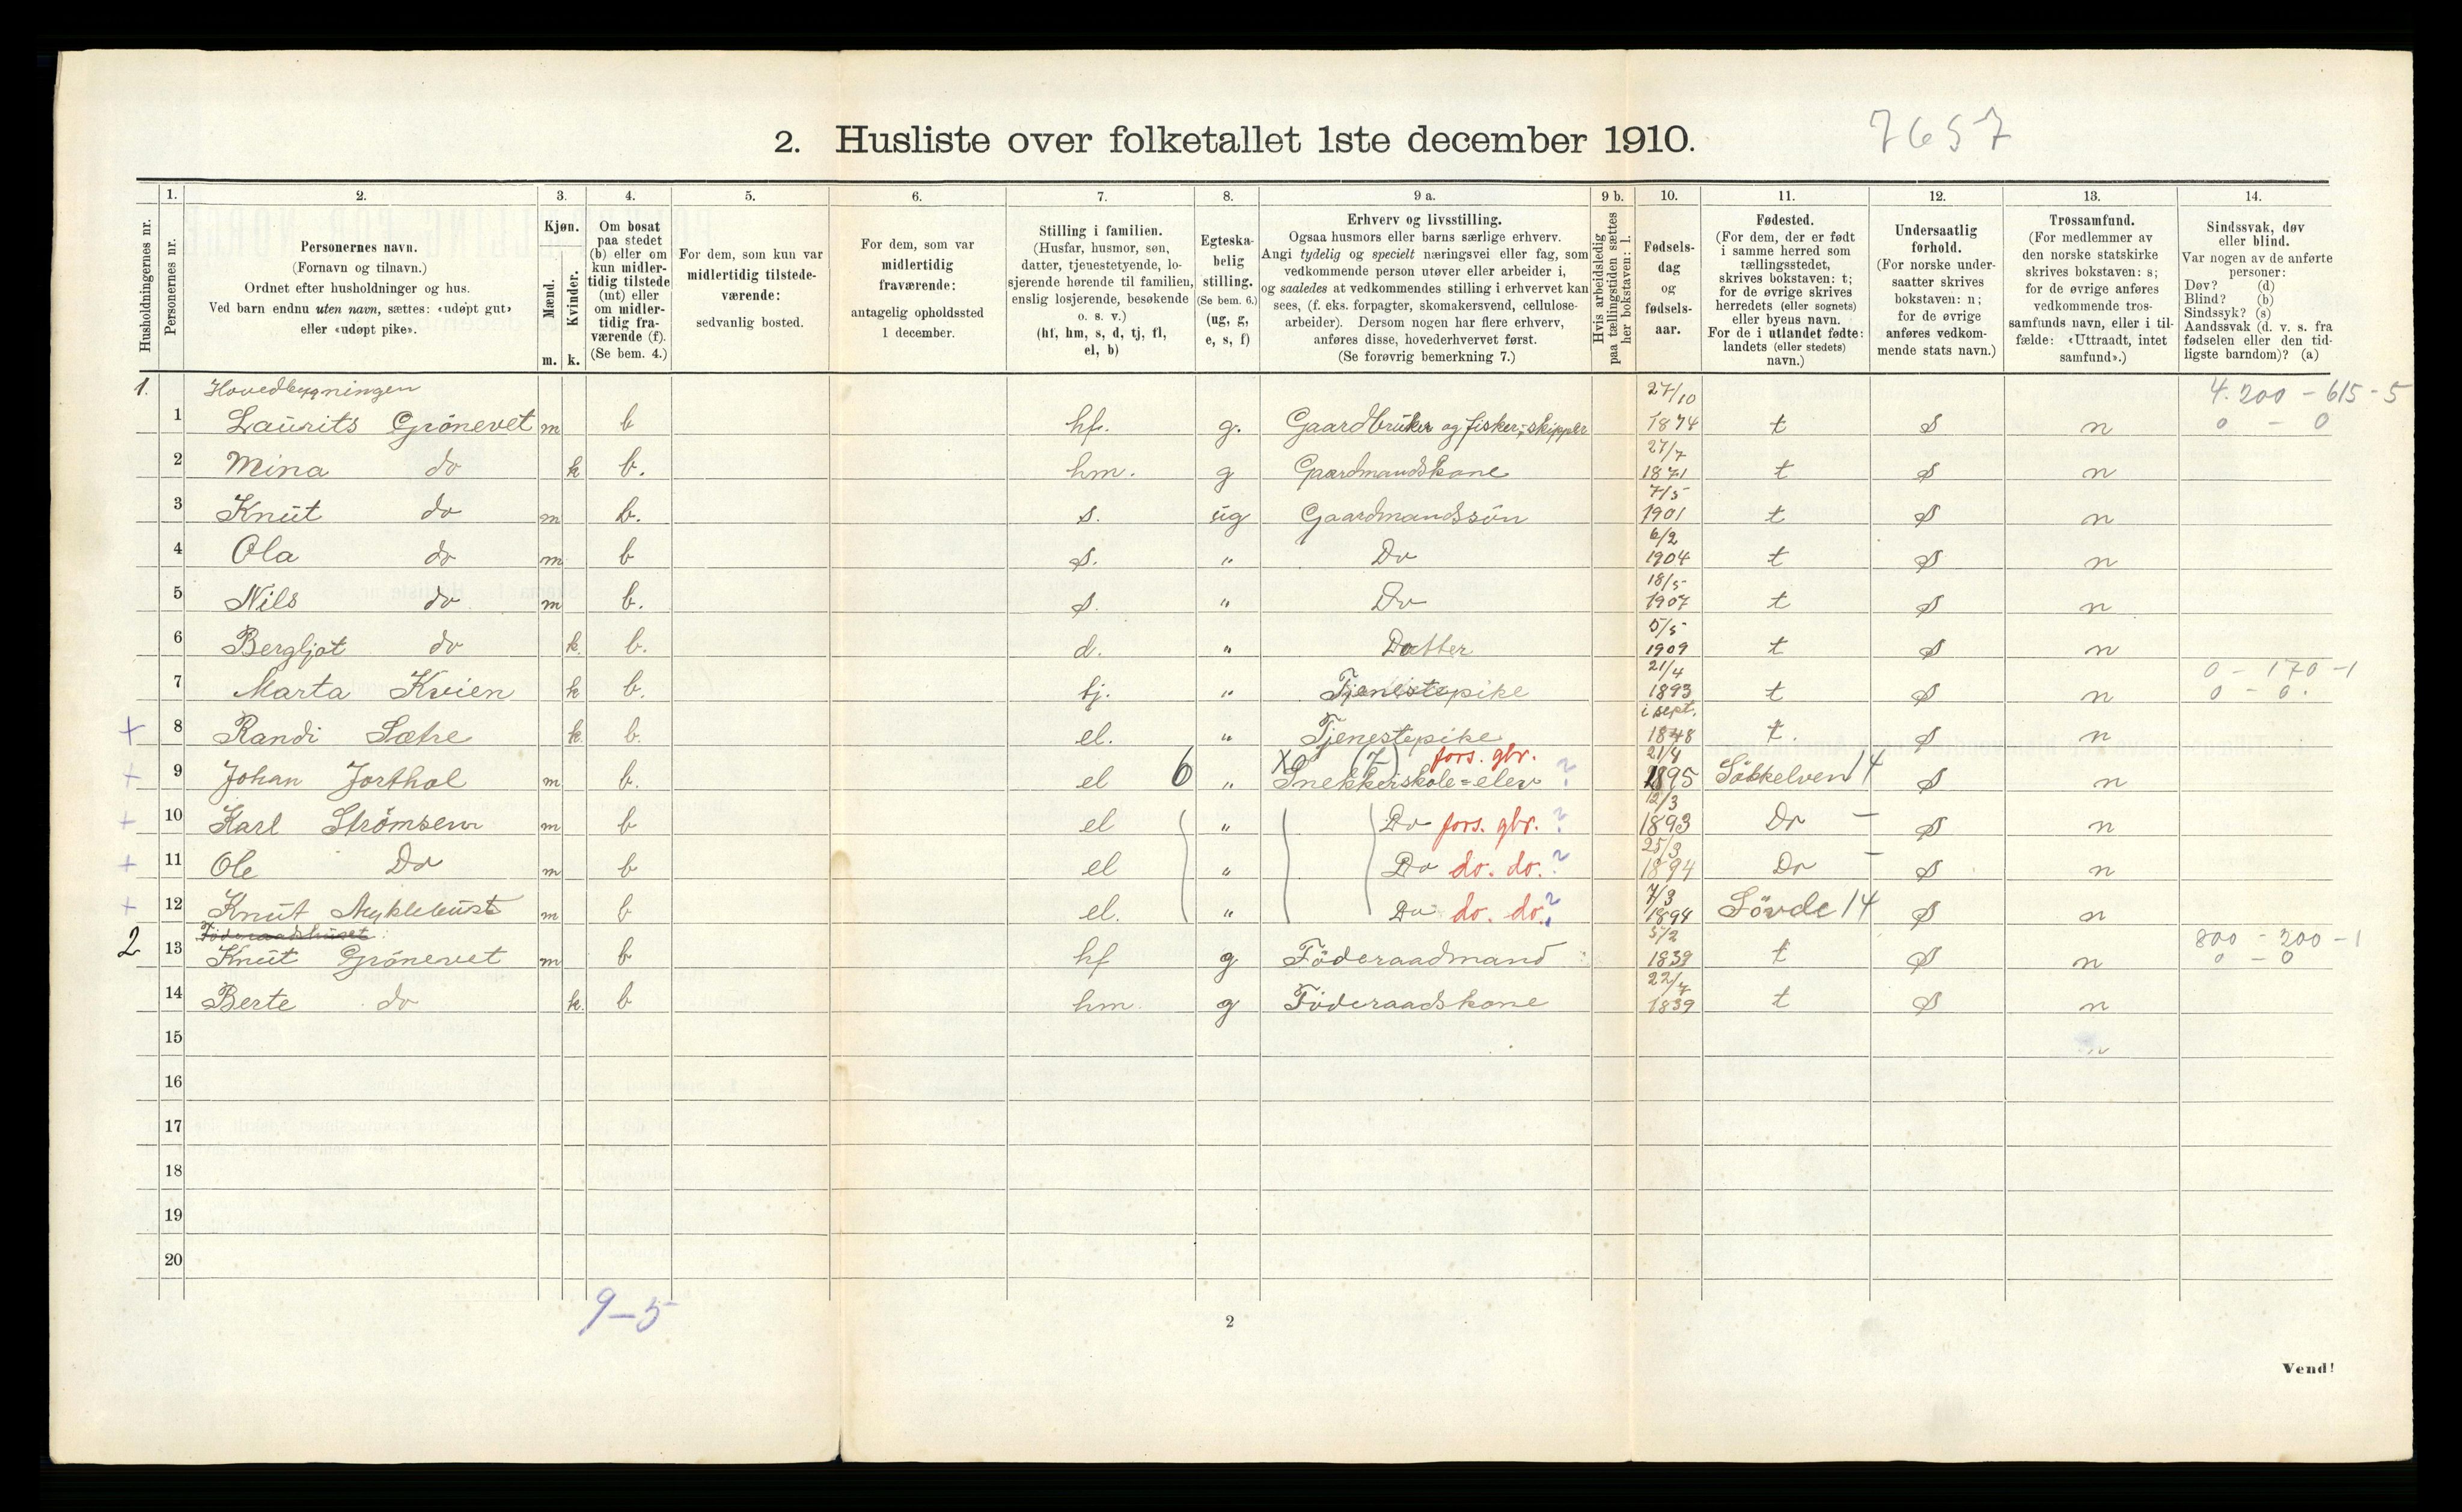 2. Husliste over folketallet 1ste december 1910.
7657
Husholdningernes nr.
1.
Personernes nr.
2.
Personernes navn.
(Fornavn og tilnavn.)
Ordnet efter husholdninger og hus.
Ved barn endnu uten navn, sættes: «udøpt gut»
eller «udøpt pike».
3.
Kjøn.
Mænd.
Kvinder.
m.
k.
4.
Om bosat
paa stedet
(b) eller om
kun midler-
tidig tilstede
(mt) eller
om midler-
tidig fra-
værende (f).
(Se bem. 4.)
5.
For dem, som kun var
midlertidig tilstede-
værende:
sedvanlig bosted.
6.
For dem, som var
midlertidig
fraværende:
antagelig opholdssted
1 december.
7.
Stilling i familien.
(Husfar, husmor, søn,
datter, tjenestetyende, lo-
sjerende hørende til familien,
enslig losjerende, besøkende
o. s. v.)
(hf, hm, s, d, tj, fl,
el, b)
8.
Egteska-
belig
stilling.
(Se bem. 6.)
(ug, g,
e, s, f)
9 a.
Erhverv og livsstilling.
Ogsaa husmors eller barns særlige erhverv.
Angi tydelig og specielt næringsvei eller fag, som
vedkommende person utøver eller arbeider i,
og saaledes at vedkommendes stilling i erhvervet kan
sees, (f. eks. forpagter, skomakersvend, cellulose-
arbeider). Dersom nogen har flere erhverv,
anføres disse, hovederhvervet først.
(Se forøvrig bemerkning 7.)
9 b.
Hvis arbeidsledig
paa tællingstiden sættes
her bokstaven: l.
10.
Fødsels-
dag
og
fødsels-
aar.
11.
Fødested.
(For dem, der er født
i samme herred som
tællingsstedet,
skrives bokstaven: t;
for de øvrige skrives
herredets (eller sognets)
eller byens navn.
For de i utlandet fødte:
landets (eller stedets)
navn.)
12.
Undersaatlig
forhold.
(For norske under-
saatter skrives
bokstaven: n;
for de øvrige
anføres vedkom-
mende stats navn.)
13.
Trossamfund.
(For medlemmer av
den norske statskirke
skrives bokstaven: s;
for de øvrige anføres
vedkommende tros-
samfunds navn, eller i til-
fælde: «Uttraadt, intet
samfund».)
14.
Sindssvak, døv
eller blind.
Var nogen av de anførte
personer:
Døv? (d)
Blind? (b)
Sindssyk? (s)
Aandssvak (d. v. s. fra
fødselen eller den tid-
ligste barndom)? (a)
1. Hovedbygningen 27/10 4.200 - 615 - 5
1 Laurits Grönevet m b hf. g. Gaardbruker og fisker-skipper 1874 t s n 0 - 0
27/7
2 Mina do k b. hm. g Gaardmandskone 1871 t s n
7/5
3 Knut do m b. s. ug Gaardmandssön 1901 t s n
6/2
4 Ola do m b s. " Do 1904 t s n
18/5
5 Nils do m b. s. " Do 1907 t s n
5/5
6 Bergljot do k. b. d. " Datter 1909 t s n
21/4 0 - 170 - 1
7 Marta Kvien k b. tj. " Tjenestepike 1893 t s n 0 - 0.
i sept.
+ 8 Randi Sætre k. b. el. " Tjenestepike 1848 t. s n
X (7) fors. gbr. 21/8
+ 9 Johan Jorthol m b. el 6 " Snekkerskole=elev ? 1895 Sökkelven 14 s n
12/3
+ 10 Karl Strömsem m b el " Do fors. gbr. ? 1893 Do — s n
25/3
+ 11 Ole Do m b el " Do do. do. ? 1894 Do — s n
7/3
+ 12 Knut Myklebust m b el. " Do do. do. ? 1894 Sövde 14 s n
Föderaadshuset 5/2 800 - 200 - 1
2 13 Knut Grönevet m b hf g Föderaadmand 1839 t s n 0 - 0
22/7
14 Berte do k. b hm. g Föderaadskone 1839 t s n
15
n
16
17
18
19
20
9-5
2
Vend!